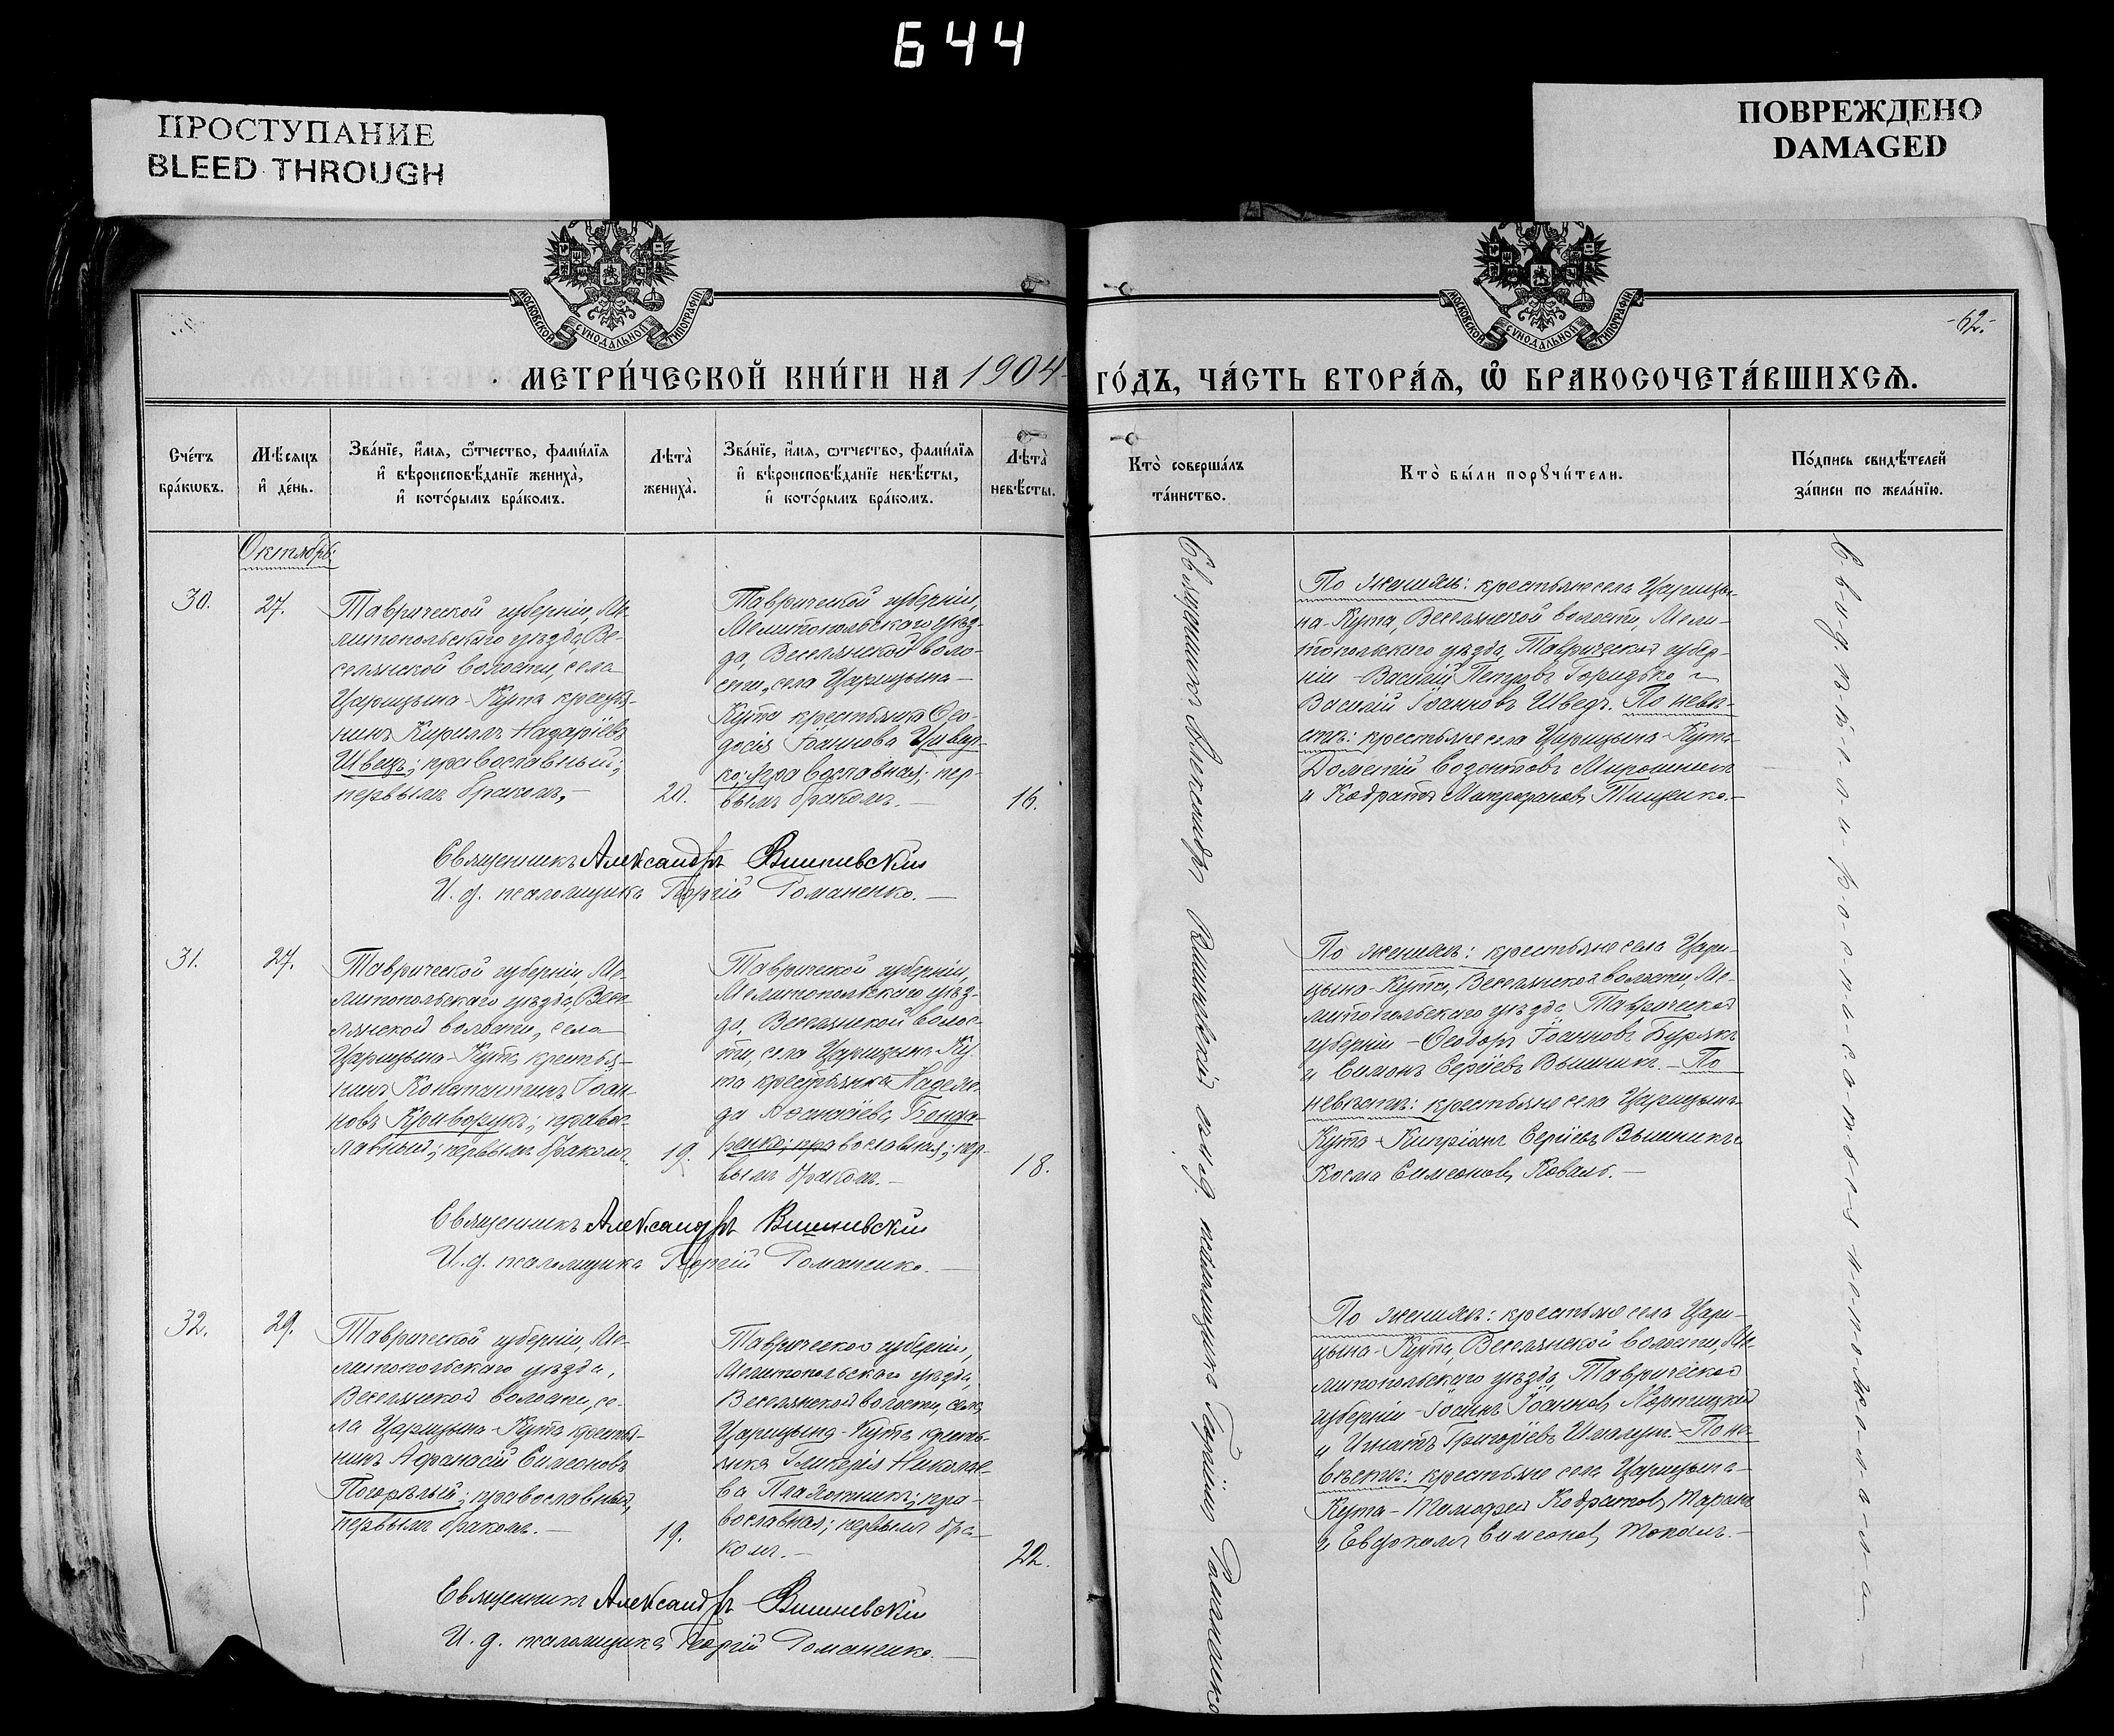 644
ПРОСТУПАНИЕ
BLEED THROUGH
ПОВРЕЖДЕНО
DAMAGED
МОСКОВСКОЙ СУНОДАЛЬНОЙ ТИПОГРАФІИ
МОСКОВСКОЙ СУНОДАЛЬНОЙ ТИПОГРАФІИ
-62.-
МЕТРИ́ЧЕСКОЙ КНИ́ГИ НА 1904 ГО́ДЪ, ЧА́СТЬ ВТОРА́Ѧ, Ѽ БРАКОСОЧЕТА́ВШИХСѦ.
Сче́тъ
бра́кѡвъ.
Мѣ́сяцъ
и҆ де́нь.
Зва́нїе, и҆́мя, ѻ҆́тчество, фами́лїя
и҆ вѣроисповѣ́данїе жениха̀,
и҆ кото́рымъ бра́комъ.
Лѣта̀
жениха̀.
Зва́нїе, и҆́мя, ѻтчество, фами́лїя
и҆ вѣроисповѣ́данїе невѣ́сты,
и҆ кото́рымъ бра́комъ.
Лѣта̀
невѣ́сты.
Кто̀ соверша́лъ
та́инство.
Кто̀ бы́ли порꙋчи́тели.
По́дпись свидѣ́телей
за́писи по жела́нїю.
Октябрь.
30.
27.
Таврической губерніи, Ме-
литопольскаго уѣзда, Ве-
селянской волости, села
Царицына-Кута крестья-
нинъ Кириллъ Назаріевъ
Швецъ; православный;
первымъ бракомъ.-
20.
Таврической губерніи,
Мелитопольскаго уѣз-
да, Веселянской воло-
сти, села Царицына-
Кута крестьянка Ѳео-
досія Іоаннова Цивар-
ко; православная; пер-
вымъ бракомъ.-
16.
По женихѣ: крестьяне села Царицы-
на-Кута, Веселянской волости, Мели-
топольскаго уѣзда, Таврической губер-
ніи - Василій Петровъ Горидько и
Василій Іоанновъ Шведъ. По невѣ-
стѣ: крестьяне села Царицына-Кута
Дометій Созонтовъ Мирошникъ
и Кодратъ Митрофановъ Тищенко.-
Священникъ Александръ Вишневскій
И. д. псаломщика Георгій Романенко.-
31.
27.
Таврической губерніи, Ме-
литопольскаго уѣзда, Весе-
лянской волости, села
Царицына-Кута крестья-
нинъ Константинъ Іоан-
новъ Криворукъ; правос-
лавный; первымъ бракомъ.
19.
Таврической губерніи,
Мелитопольскаго уѣз-
да, Веселянской волос-
ти, села Царицына-Ку-
та крестьянка Надеж-
да Аѳанасіева Бонда-
ренко; православная; пер-
вымъ бракомъ.-
18.
По женихѣ: крестьяне села Цари-
цына-Кута, Веселянской волости, Ме-
литопольскаго уѣзда, Таврической
губерніи - Ѳеодоръ Іоанновъ Бурякъ
и Симонъ Сергіевъ Вышникъ.- По
невѣстѣ: крестьяне села Царицына-
Кута - Кипріанъ Сергіевъ Вышникъ и
Косма Симеоновъ Коваль.-
Священникъ Александръ Вишневскій
И. д. псаломщика Георгій Романенко.-
32.
29.
Таврической губерніи, Ме-
литопольскаго уѣзда,
Веселянской волости, се-
ла Царицына-Кута крестья-
нинъ Аѳанасій Симеоновъ
Погорѣлый; православный,
первымъ бракомъ.-
19.
Таврической губерніи,
Мелитопольскаго уѣзда,
Веселянской волости, села
Царицына-Кута кресть-
янка Гликерія Николае-
ва Плахотникъ; пра-
вославная; первымъ бра-
комъ.-
22.
По женихѣ: крестьяне села Цари-
цына-Кута, Веселянской волости, Ме-
литопольскаго уѣзда, Таврической
губерніи - Іоаннъ Іоанновъ Хортицкій
и Игнатъ Григоріевъ . - По не-
вѣстѣ: крестьяне села Царицына-
Кута - Тимофей Кодратовъ Таранъ
и Евдокимъ Симеоновъ .-
Священникъ Александръ Вишневскій
И. д. псаломщика Георгій Романенко.-
Священникъ Александръ Вишневскій и и. д. псаломщика Георгій Романенко